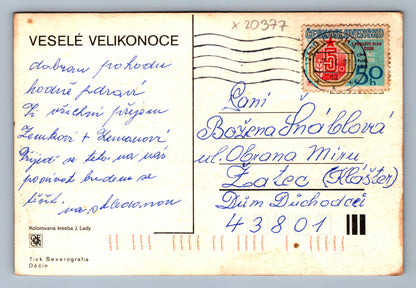 x 20377
VESELÉ VELIKONOCE
ČESKOSLOVENSKO
50h
dobrou pohodu
hodně zdraví
Vám všichni přejem
Zemkovi + Zemanová
Přijedte se na nás
podívat budem se
těšit.
na shledanou
Paní
Božena Šnáblová
ul. Obrana Míru
Žatec (Klášter)
Dům Důchodců
43801
Kolorovaná kresba J. Lady
Tisk Severografia
Děčín